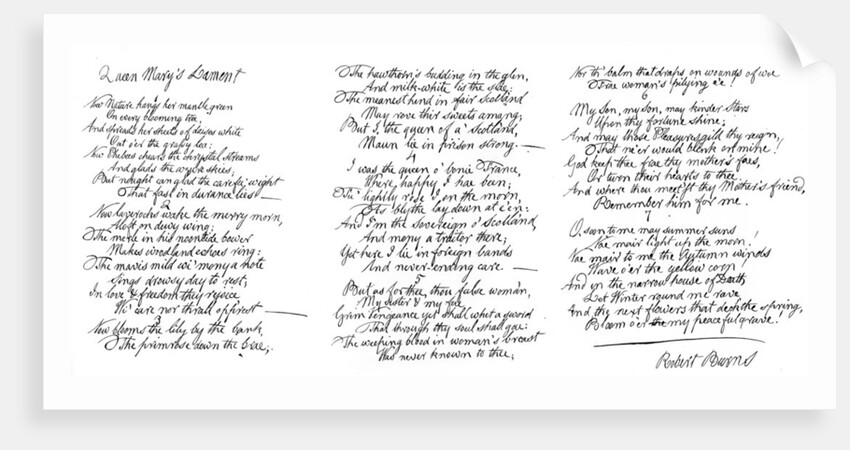 Queen Mary's Lament
Now Nature hangs her mantle green
On every blooming tree,
And spreads her sheets of daisies white
Out o'er the grassy lea:
Now Phœbus cheers the chrystal streams
And glads the azure skies;
But nought can glad the careful wight
That fast in durance lies —
2
Now laverocks wake the merry morn,
Aloft on dewy wing;
The merle in his noontide bower
Makes woodland echoes ring:
The mavis mild wi' mony a note
Sings drowsy day to rest;
In love & freedom they rejoice
Wi' care nor thrall opprest —
Now blooms the lily by the bank,
The primrose down the brae;
The hawthorn's budding in the glen,
And milk-white is the slae;
The meanest hind in fair Scotland
May rove their sweets amang;
But I, the queen of a' Scotland,
Maun lie in prison strong. —
4
I was the queen o' bonie France,
Where happy I hae been;
Fu' lightly rose I on the morn,
As blythe lay down at e'en:
And I'm the sovereign o' Scotland,
And mony a traitor there;
Yet here I lie in foreign bands
And never-ending care —
5
But as for thee, thou false woman,
My sister & my fae,
Grim Vengeance yet shall whet a sword
That through thy soul shall gae:
The weeping blood in woman's breast
Was never known to thee;
Nor th' balm that draps on wounds of woe
Frae woman's pitying e'e!
6
My son, my son, may kinder Stars
Upon thy fortune shine;
And may those Pleasures gild thy reign,
That ne'er would blink on mine!
God keep thee frae thy mother's faes,
Or turn their hearts to thee:
And where thou meet'st thy Mother's friend,
Remember him for me.
7
O soon to me may summer suns
Nae mair light up the morn!
Nae mair to me the Autumn winds
Wave o'er the yellow corn
And in the narrow house of Death
Let Winter round me rave
And the next flowers that deck the spring,
Bloom o'er the my peaceful grave!
Robert Burns